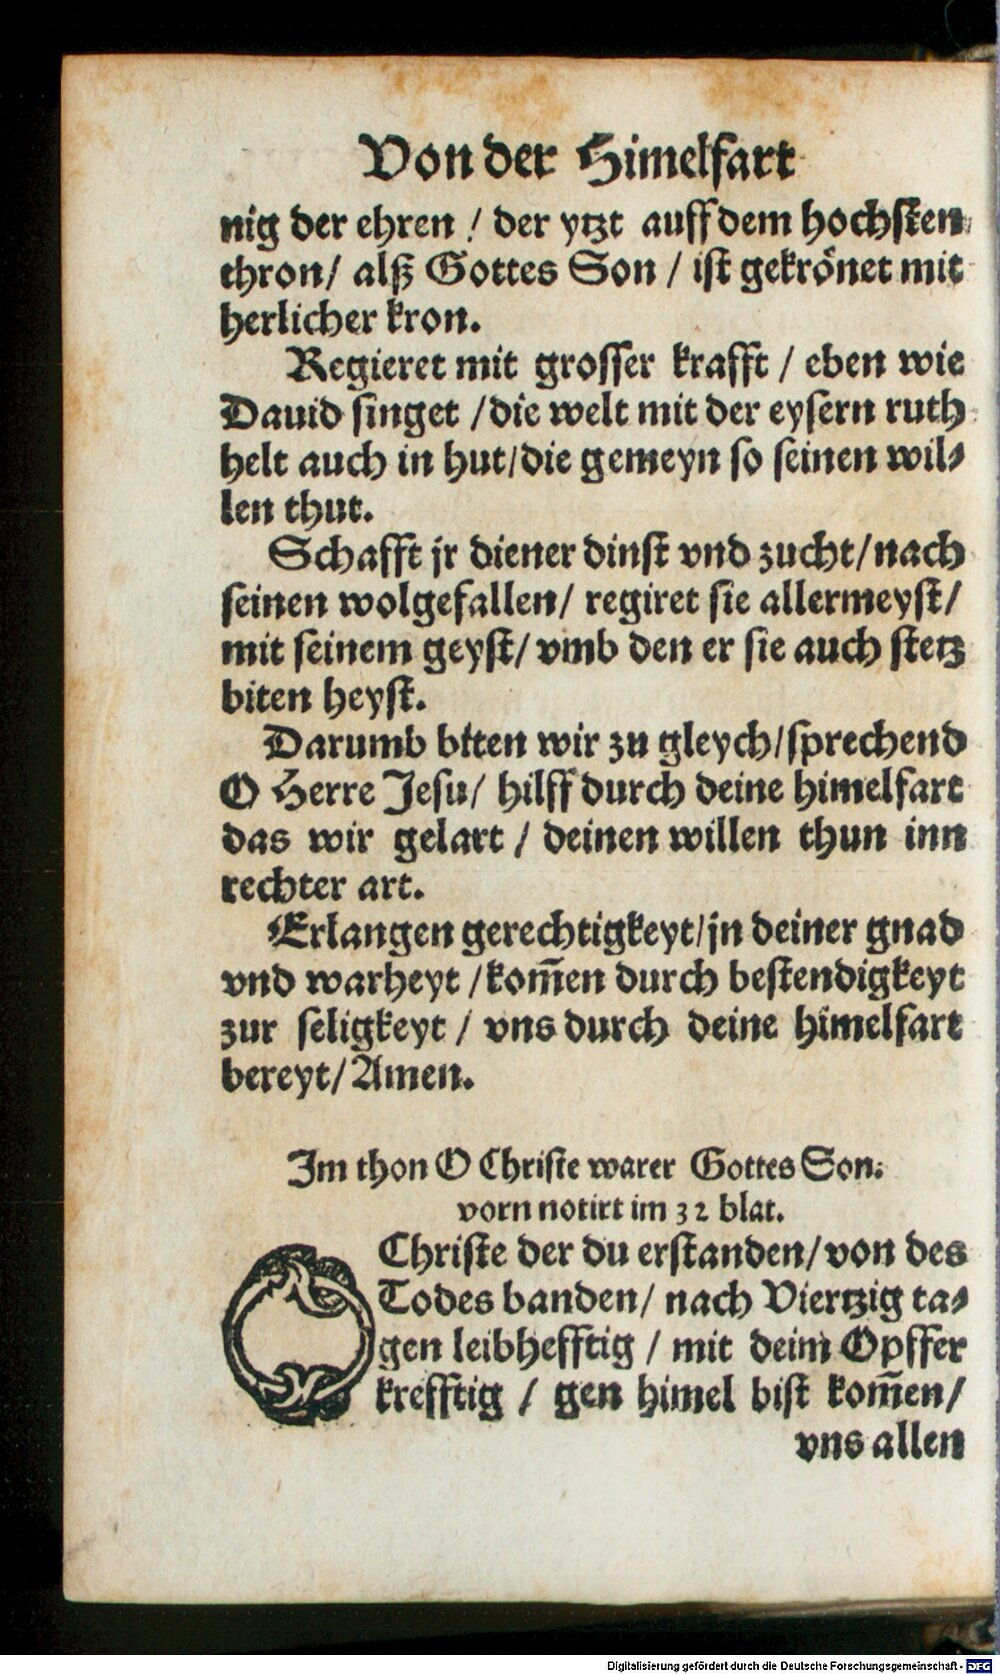 Von der Himelfart
nig der ehren / der ytzt auff dem hochsten
thron/ alß Gottes Son / ist gekrönet mit
herlicher kron.
Regieret mit grosser krafft / eben wie
Dauid singet /die welt mit der eysern ruth
helt auch in hut/die gemeyn so seinen wil⸗
len thut.
Schafft jr diener dinst vnd zucht/nach
seinen wolgefallen/ regiret sie allermeyst/
mit seinem geyst/ vmb den er sie auch stetz
biten heyst.
Darumb biten wir zu gleych/sprechend
O Herre Jesu/ hilff durch deine himelfart
das wir gelart / deinen willen thun inn
rechter art.
Erlangen gerechtigkeyt/jn deiner gnad
vnd warheyt /kom̃en durch bestendigkeyt
zur seligkeyt / vns durch deine himelfart
bereyt/ Amen.
Im thon O Christe warer Gottes Son.
vorn notirt im 32 blat.
O Christe der du erstanden/von des
Todes banden/ nach Viertzig ta⸗
gen leibhefftig / mit deim Opffer
krefftig / gen himel bist kom̃en/
vns allen
Digitalisierung gefördert durch die Deutsche Forschungsgemeinschaft - DFG